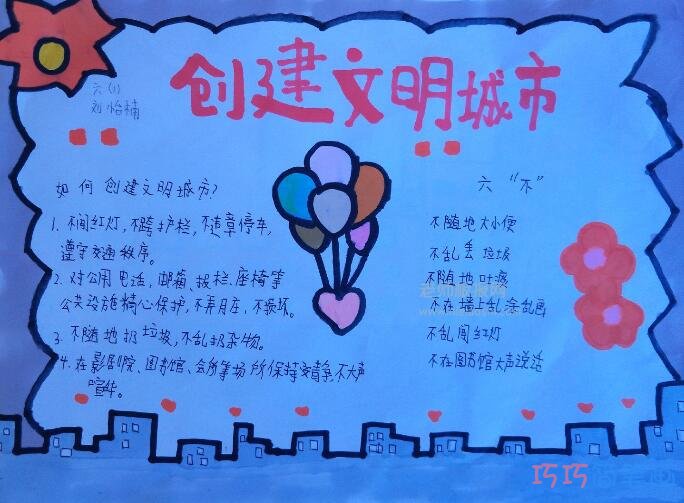 创建文明城市
六(1)
刘怡楠
如何创建文明城市?
1. 不闯红灯,不跨护栏,不违章停车,
遵守交通秩序。
2. 对公用电话,邮箱、报栏、座椅等
公共设施精心保护,不弄月庄,不损坏。
3. 不随地扔垃圾,不乱扔杂物。
4. 在影剧院、图书馆、会所等场所保持安静,不大声
喧华。
六“不”
不随地大小便
不乱丢垃圾
不随地吐痰
不在墙上乱涂乱画
不乱闯红灯
不在图书馆大声说话
老师板报网
巧巧简笔画